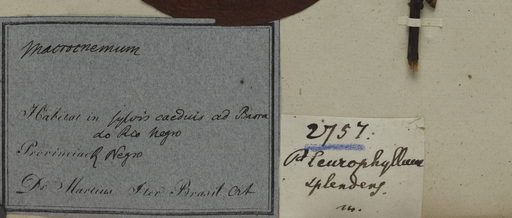 Macrocnemum
Habitat in sylvis caeduis ad Barra
do Rio Negro
Provinciae R Negro
Dr. Martius Iter Brasil.
2757.
Pleurophyllum
splendens
m.